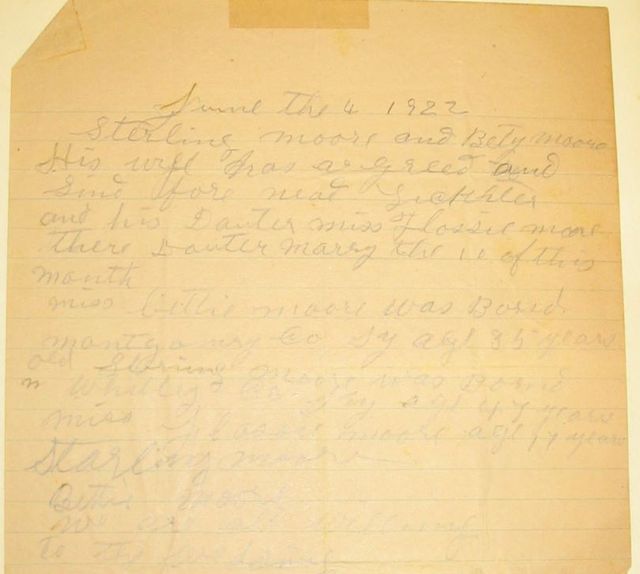 June the 4 1922
Sterling moore and Bety moore
His wife has agreed and
Sind fore neal
and his Dauter miss Flossie moore
there Dauter marry the 10 of this
month
miss bettie moore was Bornd
montgomry Co Ky age 35 years
old moore was Bornd
n Whitley Co Ky age 47 years
miss Flossie moore age 17 years
Starling moore
Bettie moore
we are all willing
to the